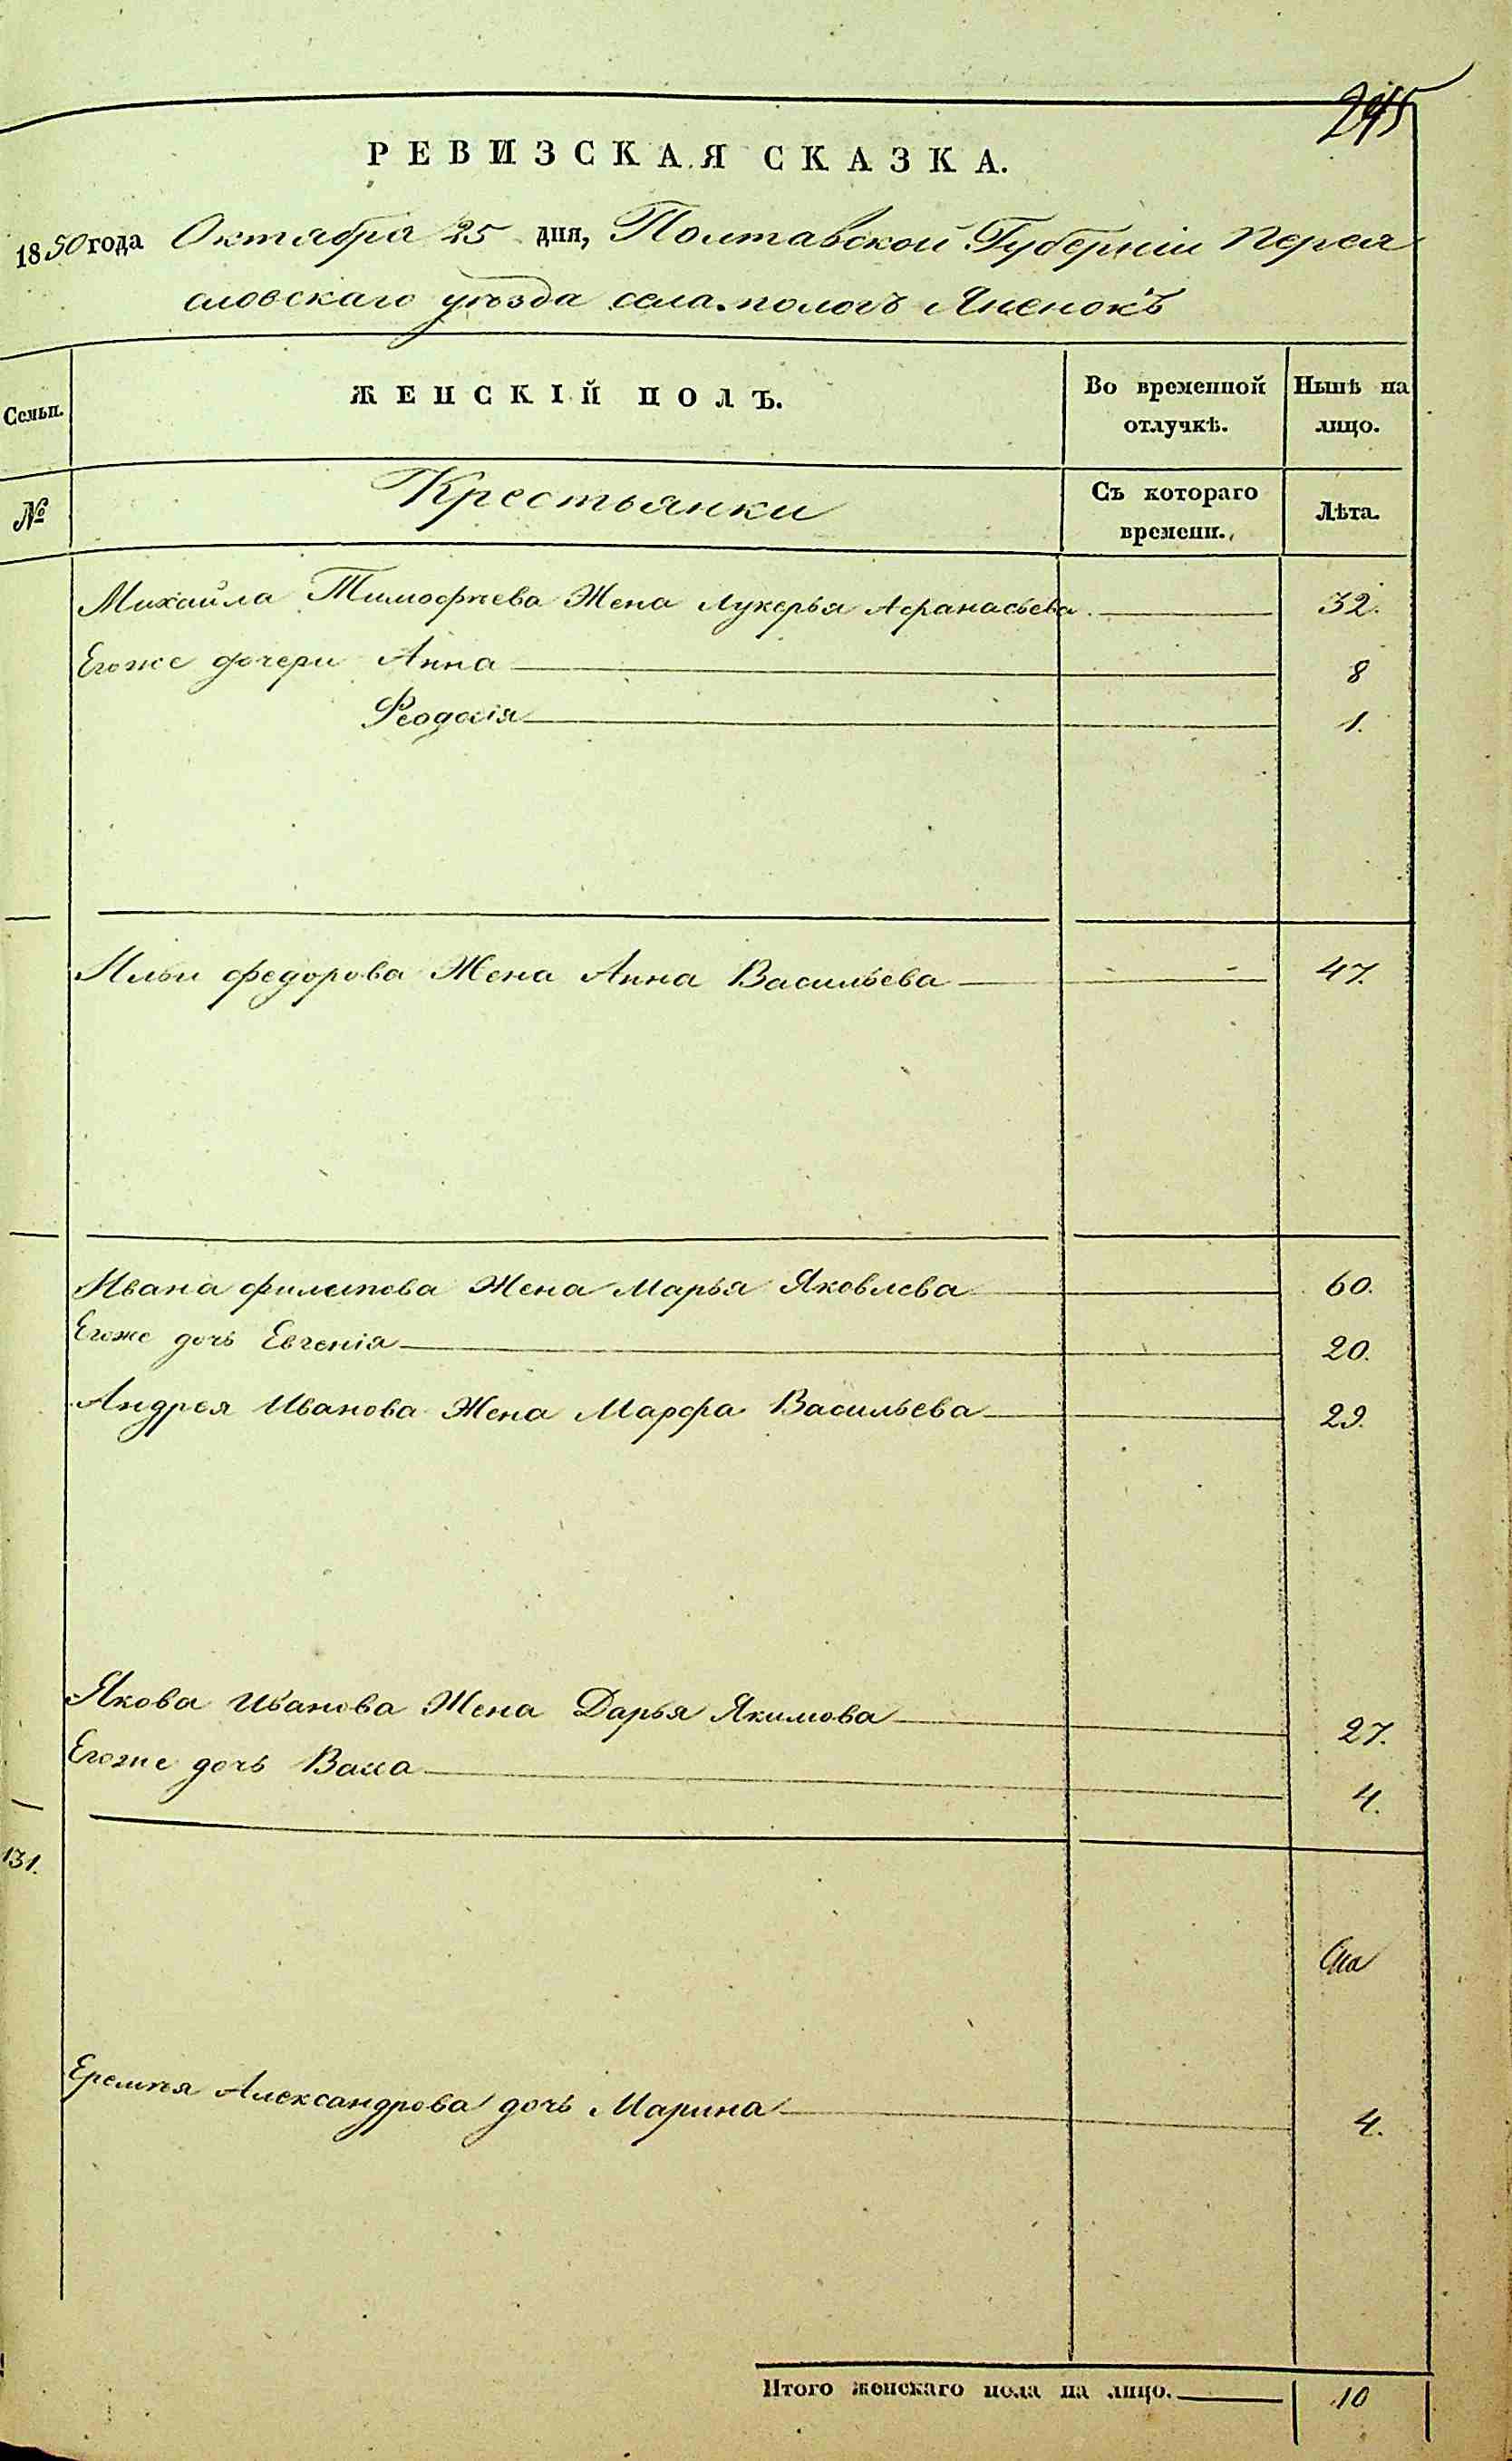 245
РЕВИЗСКАЯ СКАЗКА.
1850 года Октября 25 дня, Полтавской Губерніи Перея
словскаго уѣзда села пологъ Яненокъ
Семьи.
ЖЕНСКІЙ ПОЛЪ.
Во временной отлучкѣ.
Нынѣ на лицо.
№
Крестьянки
Съ котораго времени.
Лѣта.
Михайла Тимофѣева Жена Лукерья Афанасьева 32.
Егоже дочери Анна 8
Феодосія 1.
Ильи федорова Жена Анна Васильева 47.
Ивана филипова Жена Марья Яковлева 60.
Егоже дочь Евгенія 20.
Андрея Иванова Жена Марфа Васильева 29.
Якова Иванова Жена Дарья Якимова 27.
Егоже дочь Васса 4.
131.
Еремѣя Александрова дочь Марина 4.
Итого женскаго пола на лицо. 10